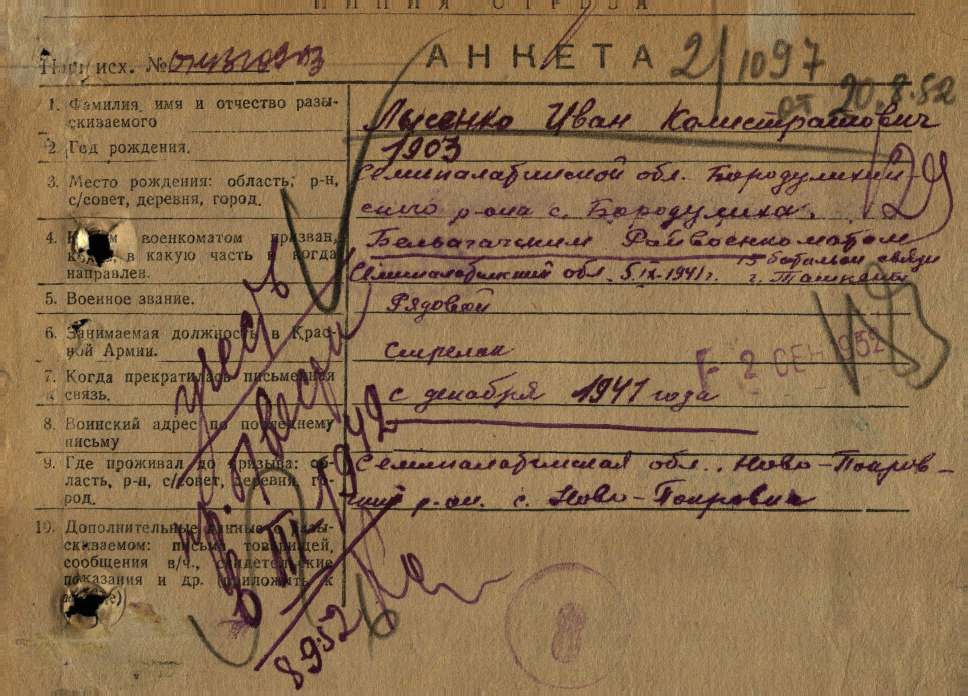 ЛИНИЯ ОТРЕЗА
АНКЕТА 2/1097
исх. №
от 20.8.52
1. Фамилия, имя и отчество разы-
скиваемого
Лысенко Иван Калистратович
2. Год рождения.
1903
3. Место рождения: область, р-н,
с/совет, деревня, город.
Семипалатинской обл. Бородулихин-
ского р-она с. Бородулиха.
4. военкоматом призван,
в какую часть и когда
направлен.
Бельагачским Райвоенкоматом
Семипалатинский обл. 5.IX-1941г. 15 батальон связи
г. Ташкент
5. Военное звание.
Рядовой
6. Занимаемая должность в Крас-
ной Армии.
Стрелок
2 СЕН 1952
7. Когда прекратилась письменная
связь.
с декабря 1941 года
8. Воинский адрес по последнему
письму
9. Где проживал до призыва: об-
ласть, р-н, с/совет, деревня, го-
род.
Семипалатинская обл., Ново-Покров-
ский р-он. с. Ново-Покровка
10. Дополнительные данные о разы-
скиваемом: письма товарищей,
сообщения в/ч., свидетельские
показания и др. (приложить к
анкете)
учесть
пр. б/вести
в III 1942
8 9 52